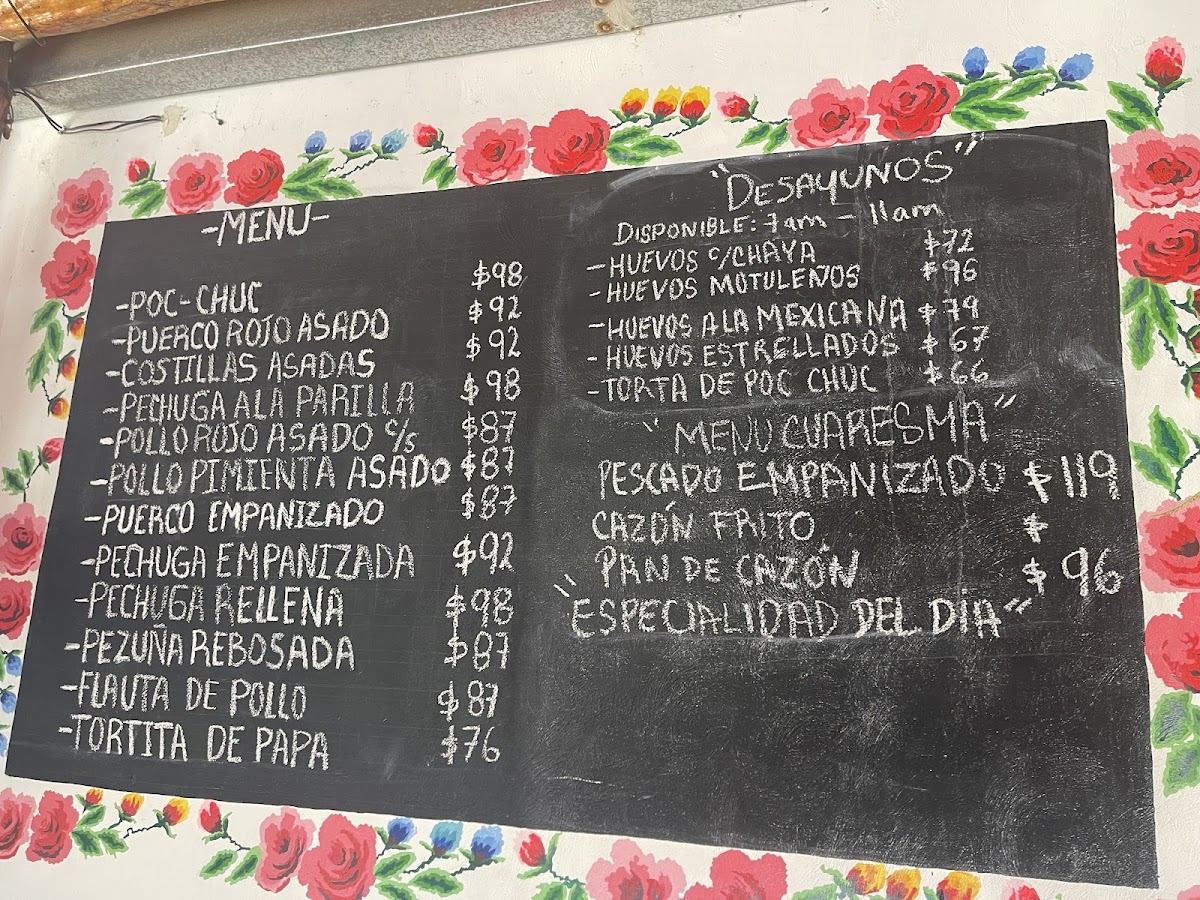 -MENU-
-POC-CHUC $98
-PUERCO ROJO ASADO $92
-COSTILLAS ASADAS $92
-PECHUGA ALA PARILLA $98
-POLLO ROJO ASADO C/S $87
-POLLO PIMIENTA ASADO $87
-PUERCO EMPANIZADO $87
-PECHUGA EMPANIZADA $92
-PECHUGA RELLENA $98
-PEZUÑA REBOSADA $87
-FLAUTA DE POLLO $87
-TORTITA DE PAPA $76
"DESAYUNOS"
DISPONIBLE: 7am - 11am
-HUEVOS C/CHAYA $72
-HUEVOS MOTULEÑOS $96
-HUEVOS ALA MEXICANA $79
-HUEVOS ESTRELLADOS $67
-TORTA DE POC CHUC $66
"MENU CUARESMA"
PESCADO EMPANIZADO $119
CAZÓN FRITO $
PAN DE CAZÓN $96
"ESPECIALIDAD DEL DIA"